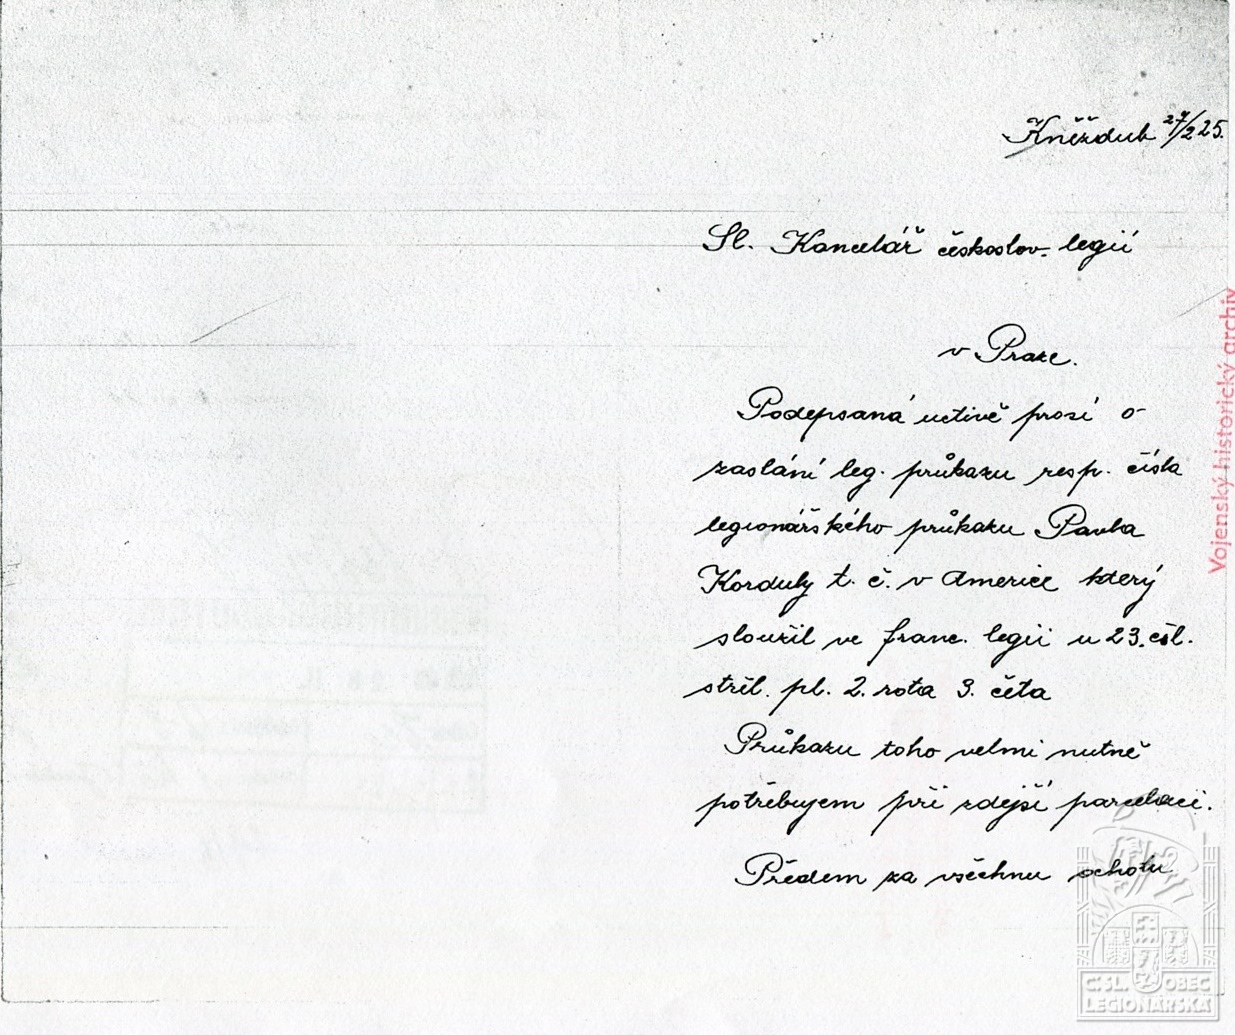 Kněždub 27/2 25.
Sl. Kancelář českoslov. legií
v Praze.
Podepsaná uctivě prosí o
zaslání leg. průkazu resp. čísla
legionářského průkazu Pavla
Korduly t. č. v Americe který
sloužil ve franc. legii u 23. čsl.
střel. pl. 2. rota 3. četa
Průkazu toho velmi nutně
potřebujem při zdejší parcelaci.
Předem za všechnu ochotu
Vojenský historický archiv
ČSL. OBEC
LEGIONÁŘSKÁ